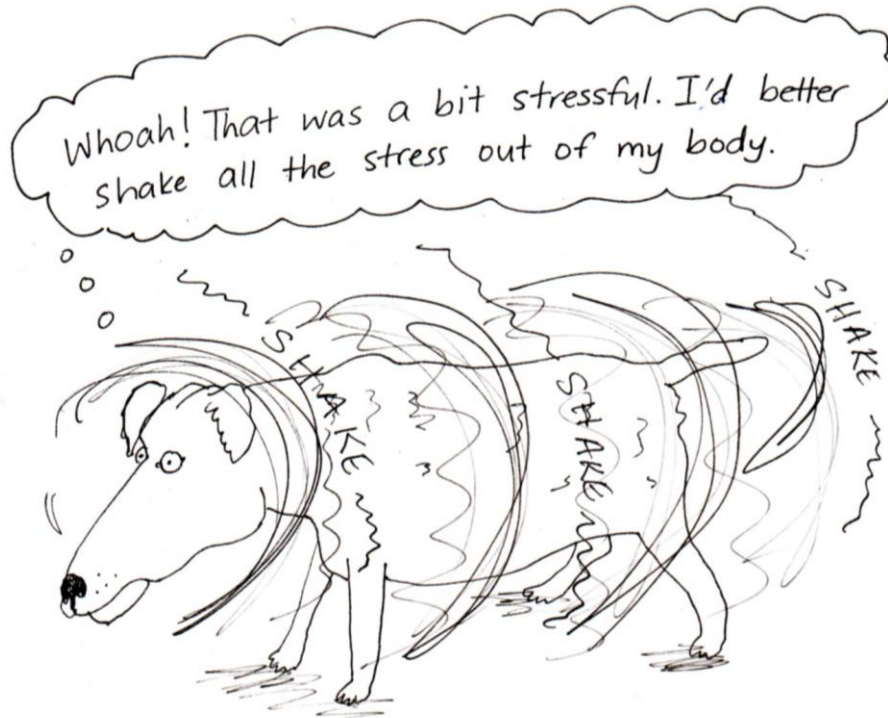 Whoah! That was a bit stressful. I'd better
shake all the stress out of my body.
SHAKE
SHAKE
SHAKE